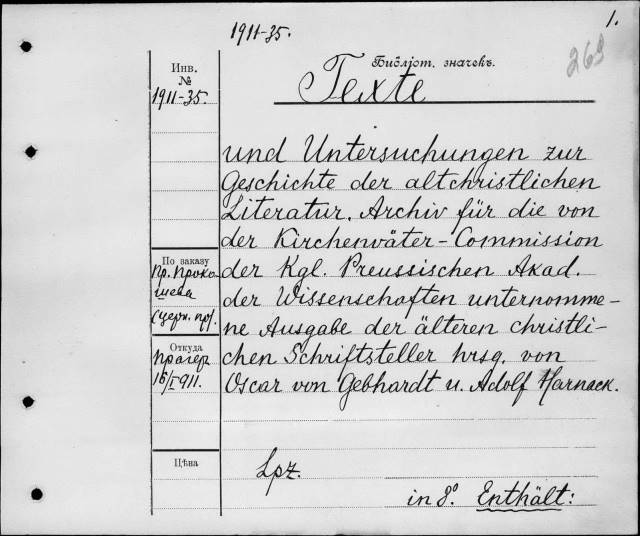 1911-35.
1.
269
Инв.
№
1911-35.
Библiот. значекъ.
Texte
und Untersuchungen zur
Geschichte der altchristlichen
Literatur. Archiv für die von
der Kirchenväter-Commission
der Kgl. Preussischen Akad.
der Wissenschaften unternomme-
ne Ausgabe der älteren christli-
chen Schriftsteller hrsg. von
Oscar von Gebhardt u. Adolf Harnack.
По заказу
Пр. Проко-
шева
(церк. пр).
Откуда
Прагеръ
16/I 911.
Цѣна
Lpz.
in 8°. Enthält: